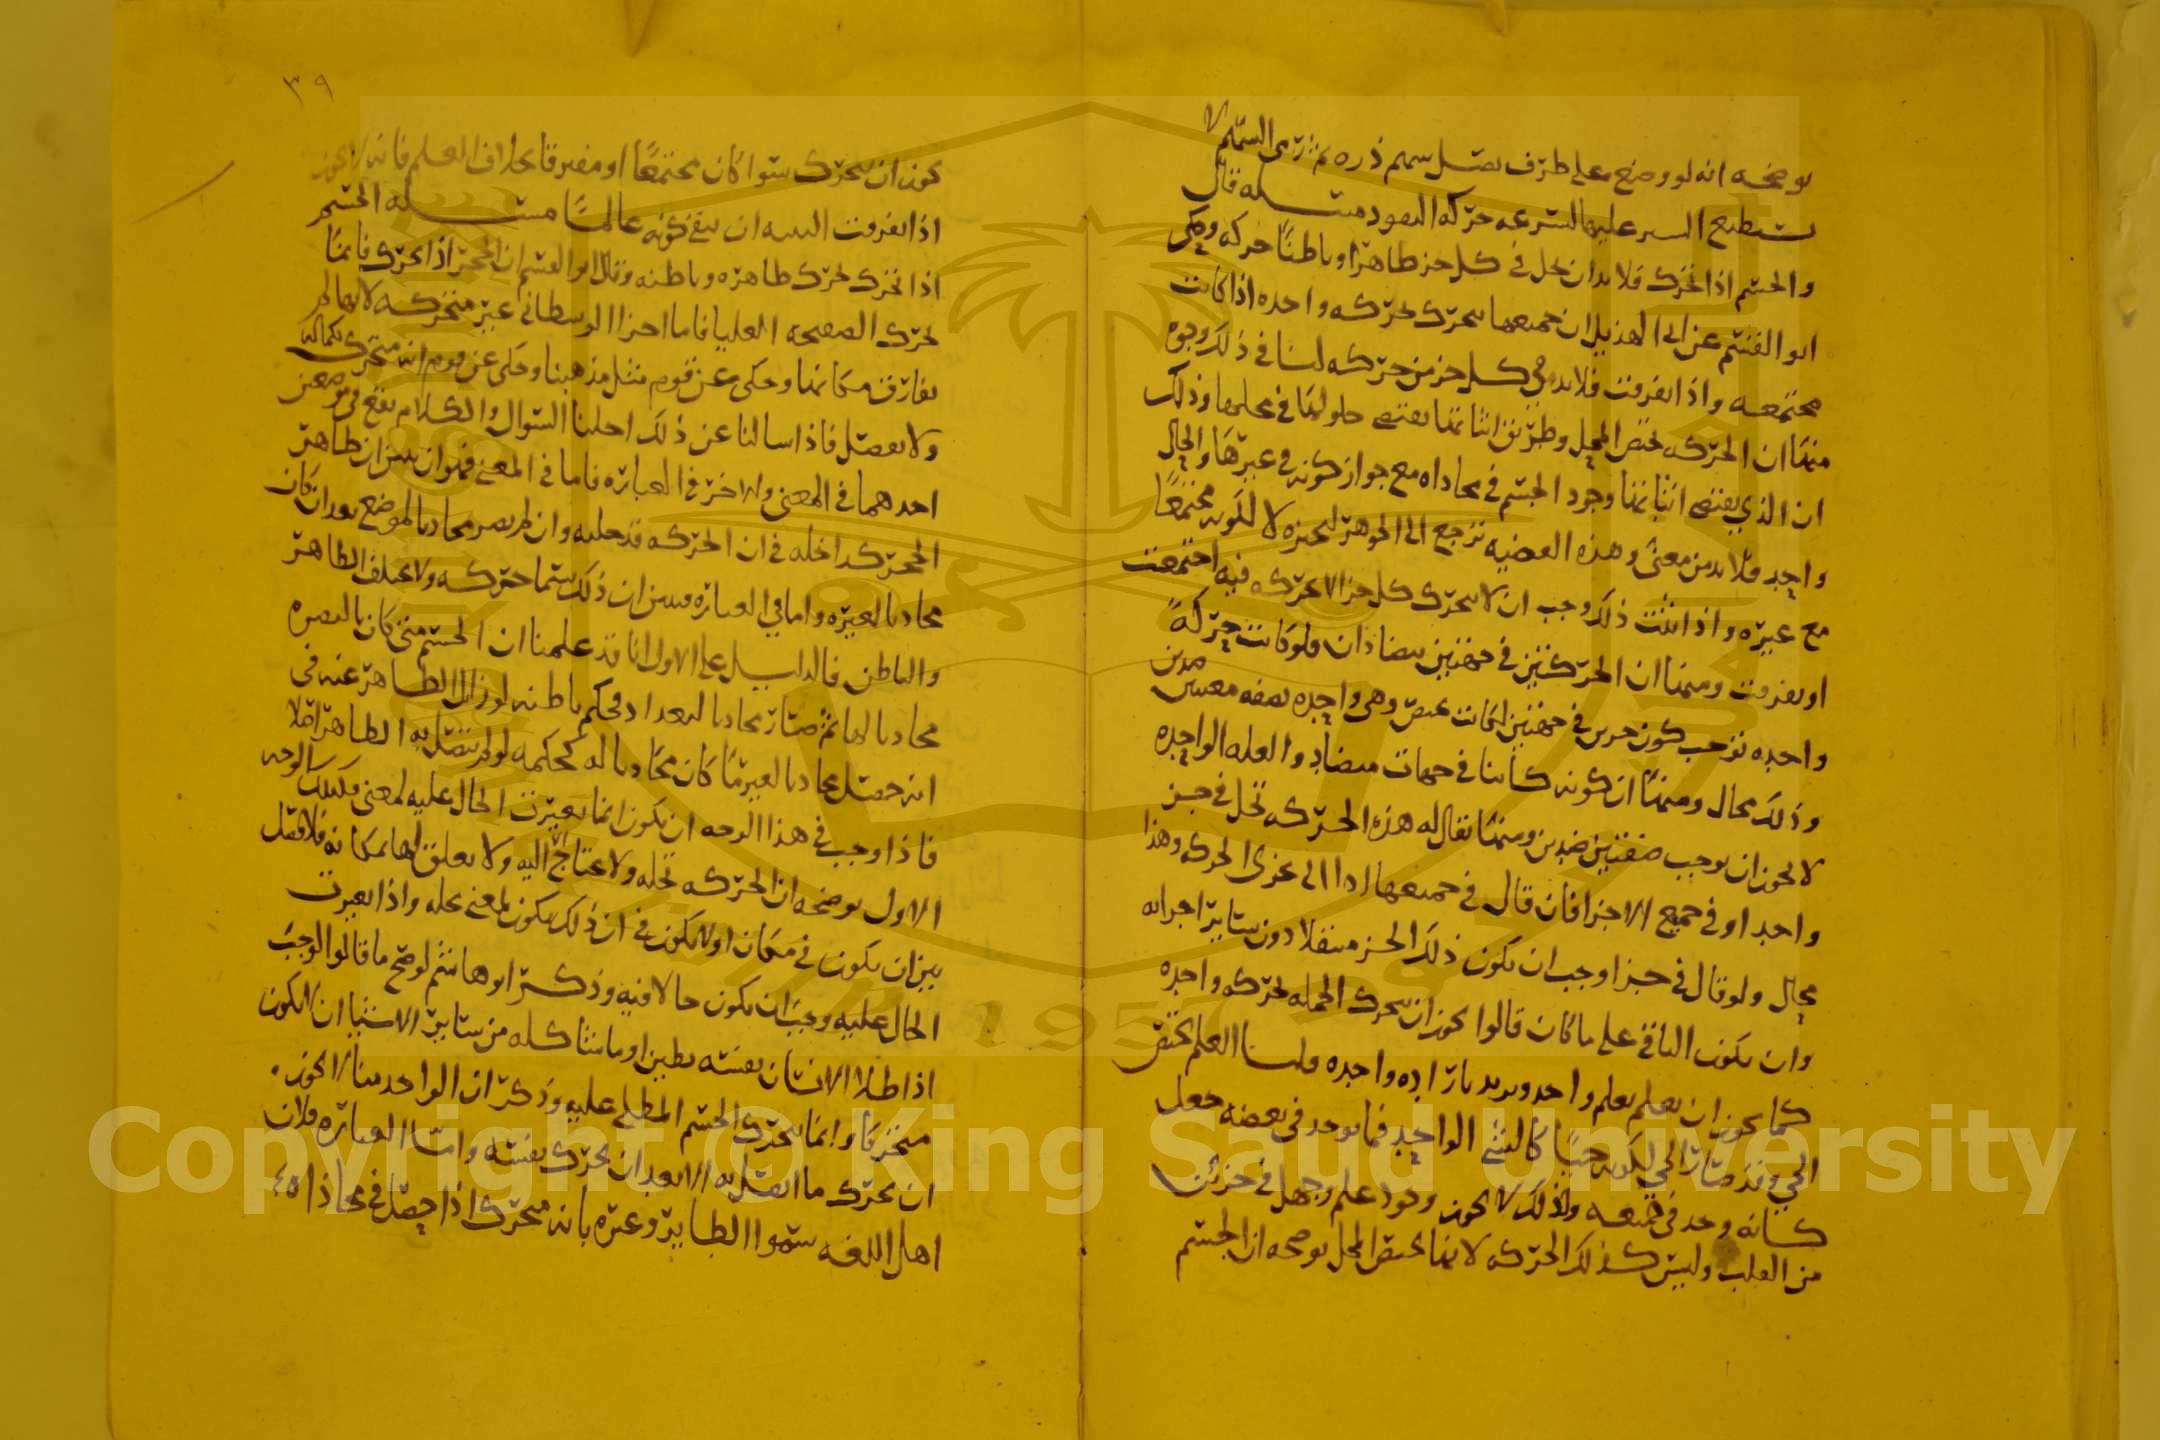 يوضحه انه لو وضع على طرف نصل سهم ذره ثم رمى السهم لا
تستطيع السير عليها لسرعه حركه العود مسله قال
والجسم اذا تحرك فلا بد ان يحل في كل جز ظاهرا وباطنا حركه وحكى
ابو القسم عن ابي الهذيل ان جميعها يتحرك بحركه واحده اذا كانت
مجتمعه واذا تفرقت فلا بد في كل جز من حركه لنا في ذلك وجوه
منها ان الحركه تختص المحل وطريق اثباتها يقتضي حلولها في محلها وذلك
ان الذي يقتضي اثباتها وجود الجسم في محاذاه مع جواز كونه في غيرها والحال
واحد فلا بد من معنى وهذه القضيه ترجع الى الجوهر لتحيزه لا لكونه مجتمعا
مع غيره واذا ثبت ذلك وجب ان لا يتحرك كل جز الا بحركه فيه اجتمعت
او تفرقت ومنها ان الحركتين في جهتين يتضادان ولو كانت حركة
واحده توجب كون جزين في جهتين لكانت هي وهي واحده بصفه معنيين ضدين
وذلك محال ومنها ان كونه كائنا في جهات متضاد والعله الواحده
لا يجوز ان يوجب صفتين ضدين ومنها يقال له هذه الحركه تحل في جز
واحد او في جميع الاجزا فان قال في جميعها ادا الى تجزى الحركه وهذا
محال ولو قال في جز اوجب ان يكون ذلك الجز متنقلا دون سائر اجزائه
وان يكون الباقي على ما كان قالوا يجوز ان يتحرك الجمله بحركه واحده
كما يجوز ان يعلم بعلم واحد ويريد باراده واحده قلنا العلم يختص
الحي وقد صار الحي لكونه حيا كالشي الواحد فما يوجد في بعضه جعل
كانه وجد في جميعه ولذلك لا يجوز وجود علم وجهل في جزئين
من القلب وليس كذلك الحركه لانها تختص المحل يوضحه ان الجسم
٣٩
يجوز ان يتحرك سوا كان مجتمعا او مفترقا بخلاف العلم فانه لا يجوز
اذا تفرقت البنيه ان يبقى كونه عالما مسله الجسم
اذا تحرك تحرك ظاهره وباطنه وقال ابو القسم ان الحجر اذا تحرك فانما
تحرك الصفحه العليا فاما اجزا الوسطاني غير متحركه لانها لم
تفارق مكانها وحكى عن قوم مثل مذهبنا وحكى عن قوم انه متحرك بكماله
ولا يفصل فاذا سالنا عن ذلك احلنا السوال والكلام يقع في موضعين
احدهما في المعنى والاخر في العباره فاما في المعنى فهو ان نبين ان ظاهر
المتحرك داخله في ان الحركه قد حلته وان لم يصر محاذيا لموضع بعد ان كان
محاذيا لغيره واما في العباره فنبين ان ذلك يسما حركه ولا يختلف الظاهر
والباطن فالدليل على الاول انا قد علمنا ان الجسم متى كان بالبصره
محاذيا لها ثم صار محاذيا لبغداد فحكم باطنه لو زال الظاهر عنه في
انه حصل محاذيا لغير ما كان محاذيا له كحكمه لو لم يتصل به الظاهر
فاذا وجب في هذا الوجه ان يكون انما تغيرت الحال عليه لمعنى فكذلك الوجه
الاول يوضحه ان الحركه تحله ولا تحتاج اليه ولا تعلق لها بمكانه فلا فصل
بين ان يكون في مكان او لا يكون في ان ذلك يكون لمعنى يحله واذا تغيرت
الحال عليه وجب ان يكون حالا فيه وذكر ابو هاشم لو صح ما قالوا لوجب
اذا طلا الانسان نفسه بطين او ما شاكله من سائر الاشيا ان لا يكون
متحركا وانما يتحرك الجسم المطلي عليه وذكر ان الواحد منا لا يجوز
ان يحرك ما اتصل به الا بعد ان يحرك نفسه واما العباره فلان
اهل اللغه سموا الطاير وغيره بانه متحرك اذا حصل في محاذاه
Copyright © King Saud University
1957